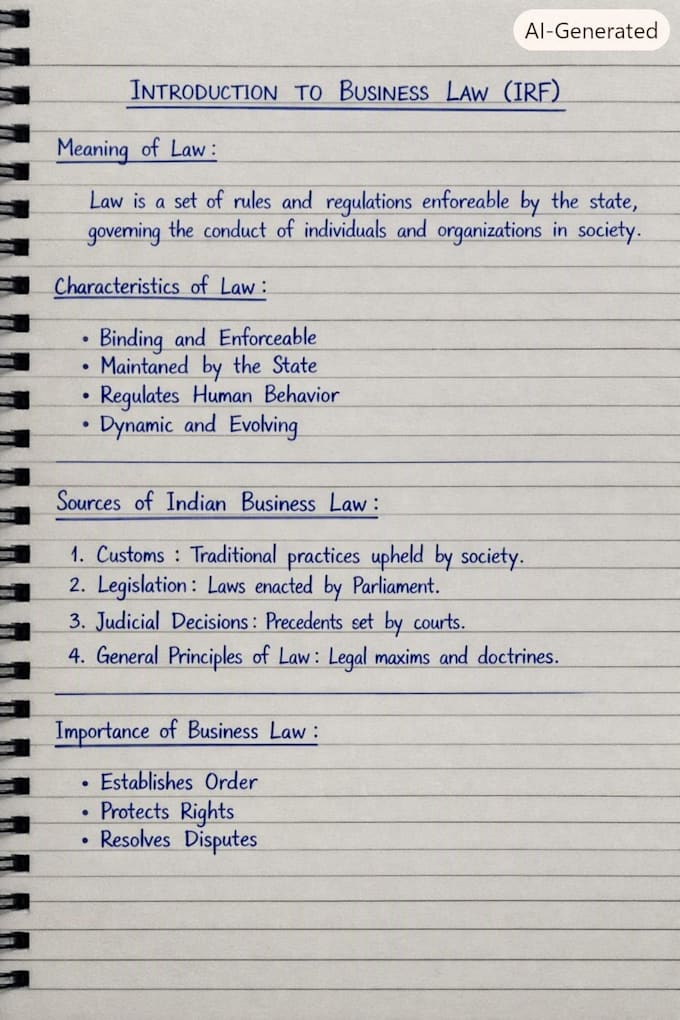 AI-Generated
INTRODUCTION TO BUSINESS LAW (IRF)
Meaning of Law:
Law is a set of rules and regulations enforeable by the state,
governing the conduct of individuals and organizations in society.
Characteristics of Law:
• Binding and Enforceable
• Maintaned by the State
• Regulates Human Behavior
• Dynamic and Evolving
Sources of Indian Business Law:
1. Customs : Traditional practices upheld by society.
2. Legislation: Laws enacted by Parliament.
3. Judicial Decisions: Precedents set by courts.
4. General Principles of Law: Legal maxims and doctrines.
Importance of Business Law:
• Establishes Order
• Protects Rights
• Resolves Disputes